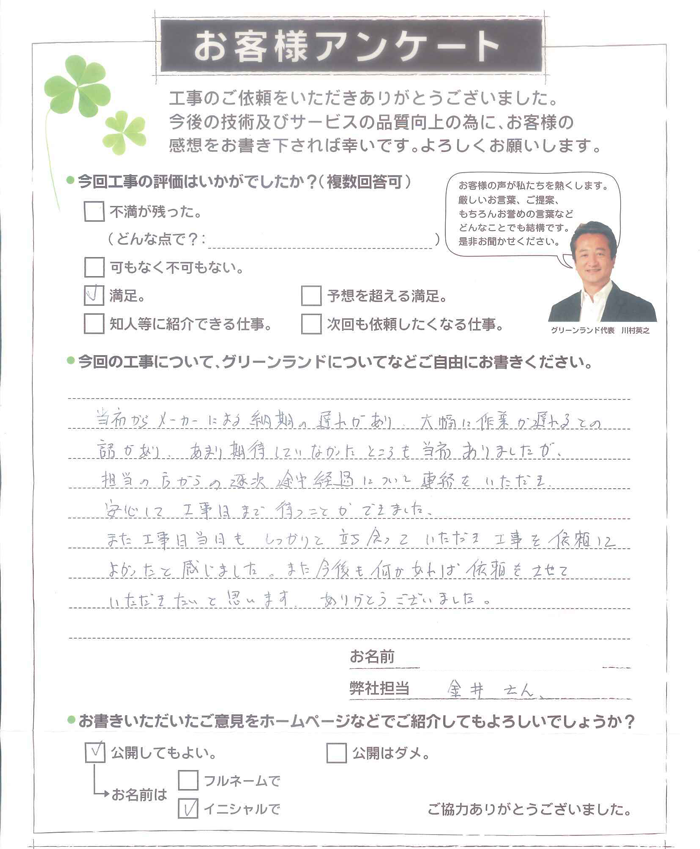 お客様アンケート
工事のご依頼をいただきありがとうございました。
今後の技術及びサービスの品質向上の為に、お客様の
感想をお書き下されば幸いです。よろしくお願いします。
●今回工事の評価はいかがでしたか?(複数回答可)
お客様の声が私たちを熱くします。
厳しいお言葉、ご提案、
もちろんお誉めの言葉など
どんなことでも結構です。
是非お聞かせください。
不満が残った。
(どんな点で?: )
可もなく不可もない。
満足。
予想を超える満足。
知人等に紹介できる仕事。
次回も依頼したくなる仕事。
グリーンランド代表 川村英之
●今回の工事について、グリーンランドについてなどご自由にお書きください。
当初からメーカーによる納期の遅れがあり、大幅に作業が遅れるとの
話があり、あまり期待していなかったところも当初ありましたが、
担当の方からの逐次途中経過について連絡をいただき、
安心して工事日まで待つことができました、
また工事日当日もしっかりと立ち会っていただき工事を依頼して
よかったと感じました。また今後も何かあれば依頼をさせて
いただきたいと思います。ありがとうございました。
お名前
弊社担当 金井さん、
●お書きいただいたご意見をホームページなどでご紹介してもよろしいでしょうか?
公開してもよい。
公開はダメ。
お名前は
フルネームで
イニシャルで
ご協力ありがとうございました。